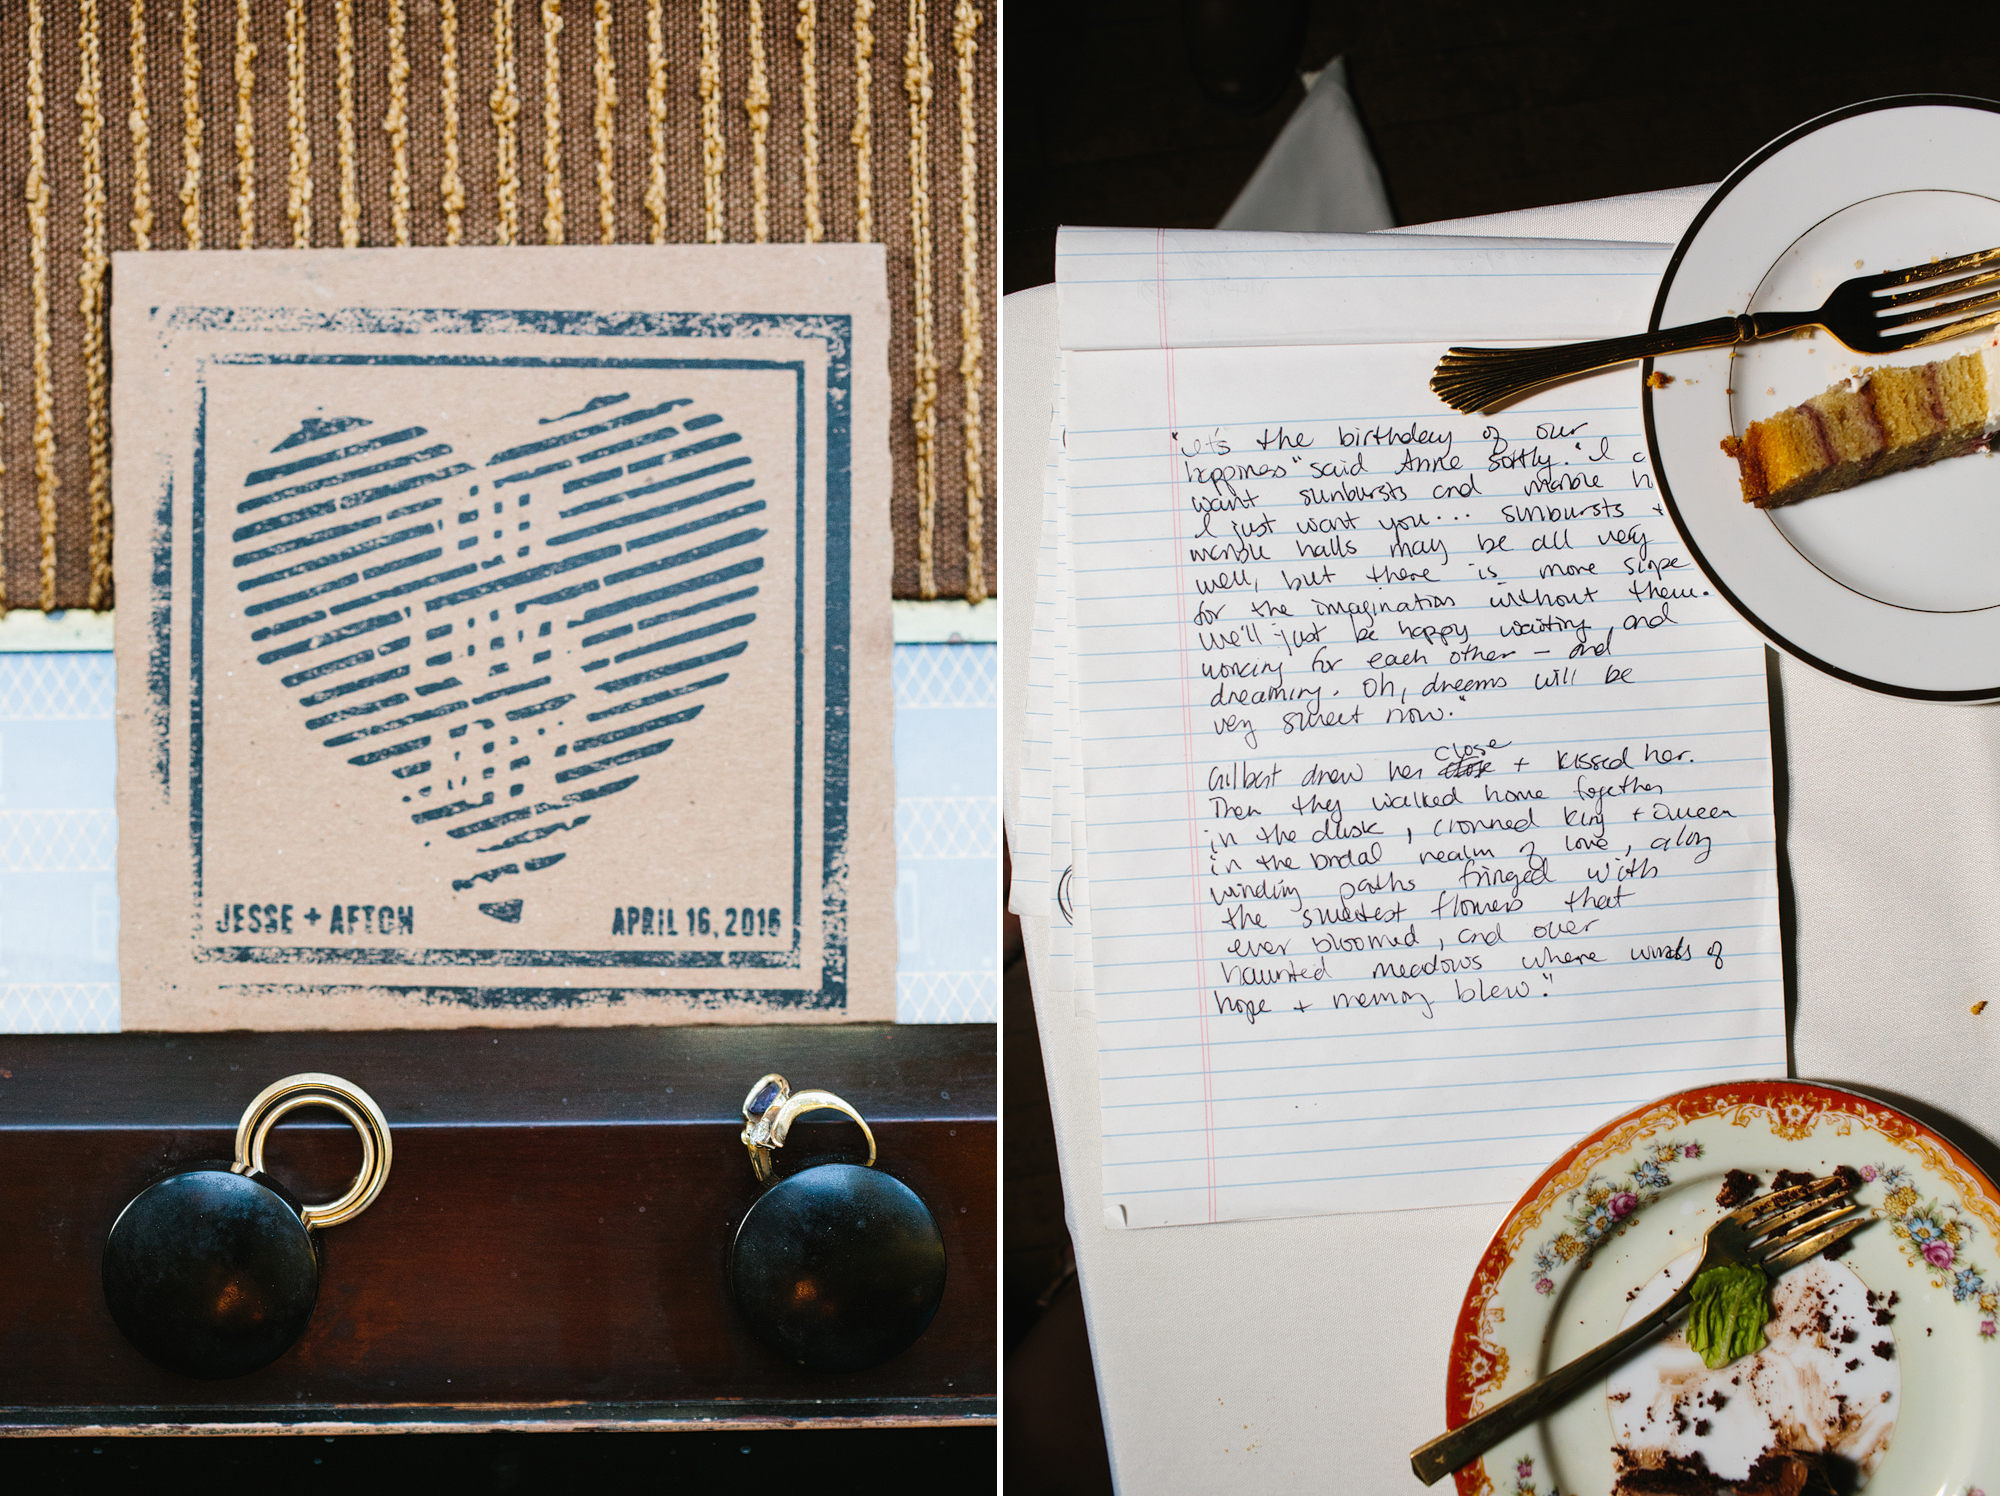 JESSE + AFTON
APRIL 16, 2016
"it's the birthday of our
happiness" said Anne softly. "I
want sunbursts and marble
I just want you... sunbursts +
marble halls may be all very
well, but there is more scope
for the imagination without them.
We'll just be happy waiting and
working for each other – and
dreaming. Oh, dreams will be
very sweet now."
Gilbert drew her close + kissed her.
Then they walked home together
in the dusk, crowned king + Queen
in the bridal realm of love, along
winding paths fringed with
the sweetest flowers that
ever bloomed, and over
haunted meadows where winds of
hope + memory blew."